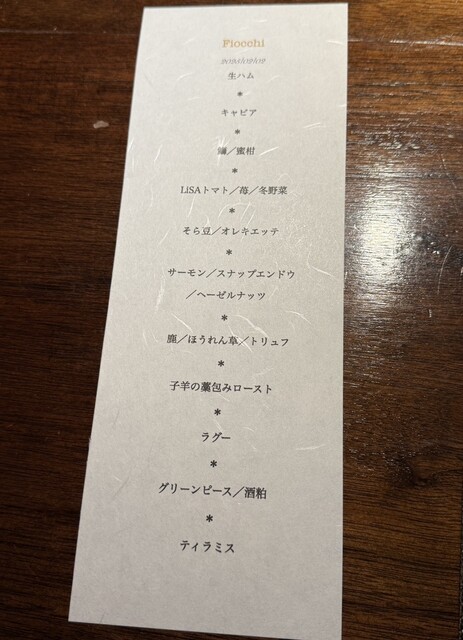 Fiocchi
生ハム
*
キャビア
*
／蜜柑
*
LiSAトマト／苺／冬野菜
*
そら豆／オレキエッテ
*
サーモン／スナップエンドウ
／ヘーゼルナッツ
*
鹿／ほうれん草／トリュフ
*
子羊の藁包みロースト
*
ラグー
*
グリーンピース／酒粕
*
ティラミス